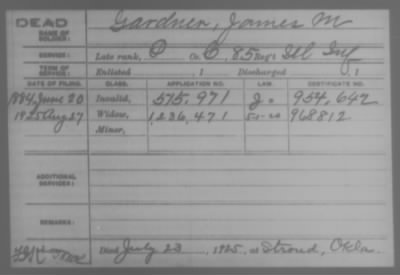 DEAD
NAME OF SOLDIER: Gardner, James M
SERVICE: Late rank, P Co. C, 85 Reg't Ill Inf
TERM OF SERVICE: Enlisted , 1 Discharged , 1
DATE OF FILING. CLASS. APPLICATION NO. LAW. CERTIFICATE NO.
1884, June 20 Invalid, 515,971 J. 954,642
1925 Aug 27 Widow, 1,236,471 5-1-20 968812
Minor,
ADDITIONAL SERVICES:
REMARKS:
Died July 23, 1925, at Stroud, Okla.